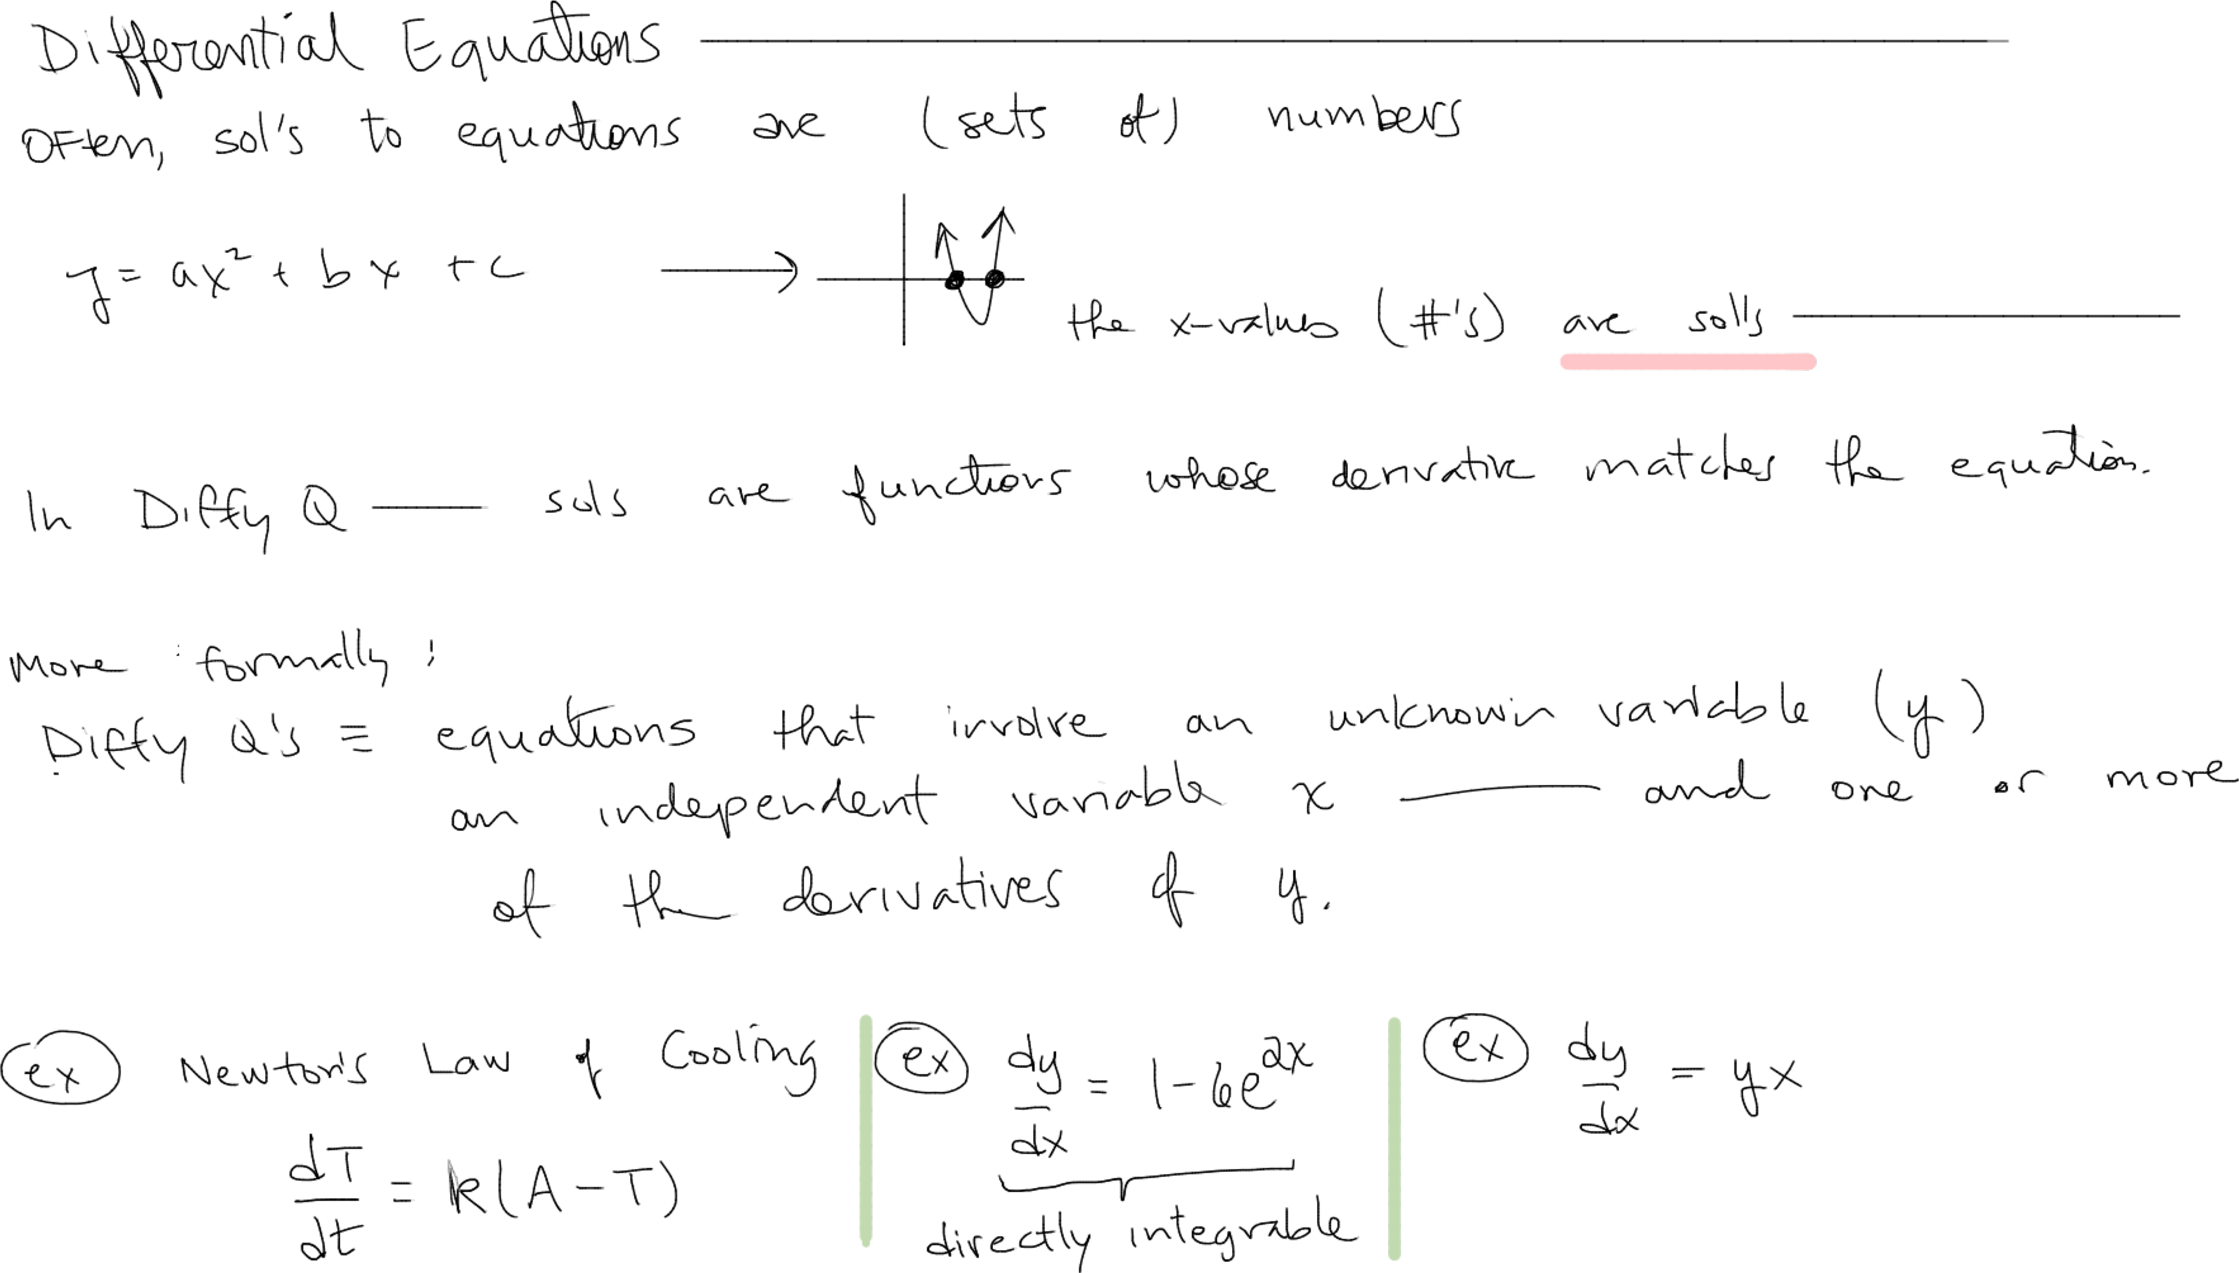 Differential Equations
Often, sol's to equations are (sets of) numbers
y = ax² + bx + c
the x-values (#'s) are sol's
In Diffy Q — sols are functions whose derivative matches the equation.
More formally:
Diffy Q's ≡ equations that involve an unknown variable (y)
an independent variable x — and one or more
of the derivatives of y.
ex Newton's Law of Cooling
dT/dt = k(A-T)
ex dy/dx = 1-6e^2x
directly integrable
ex dy/dx = yx